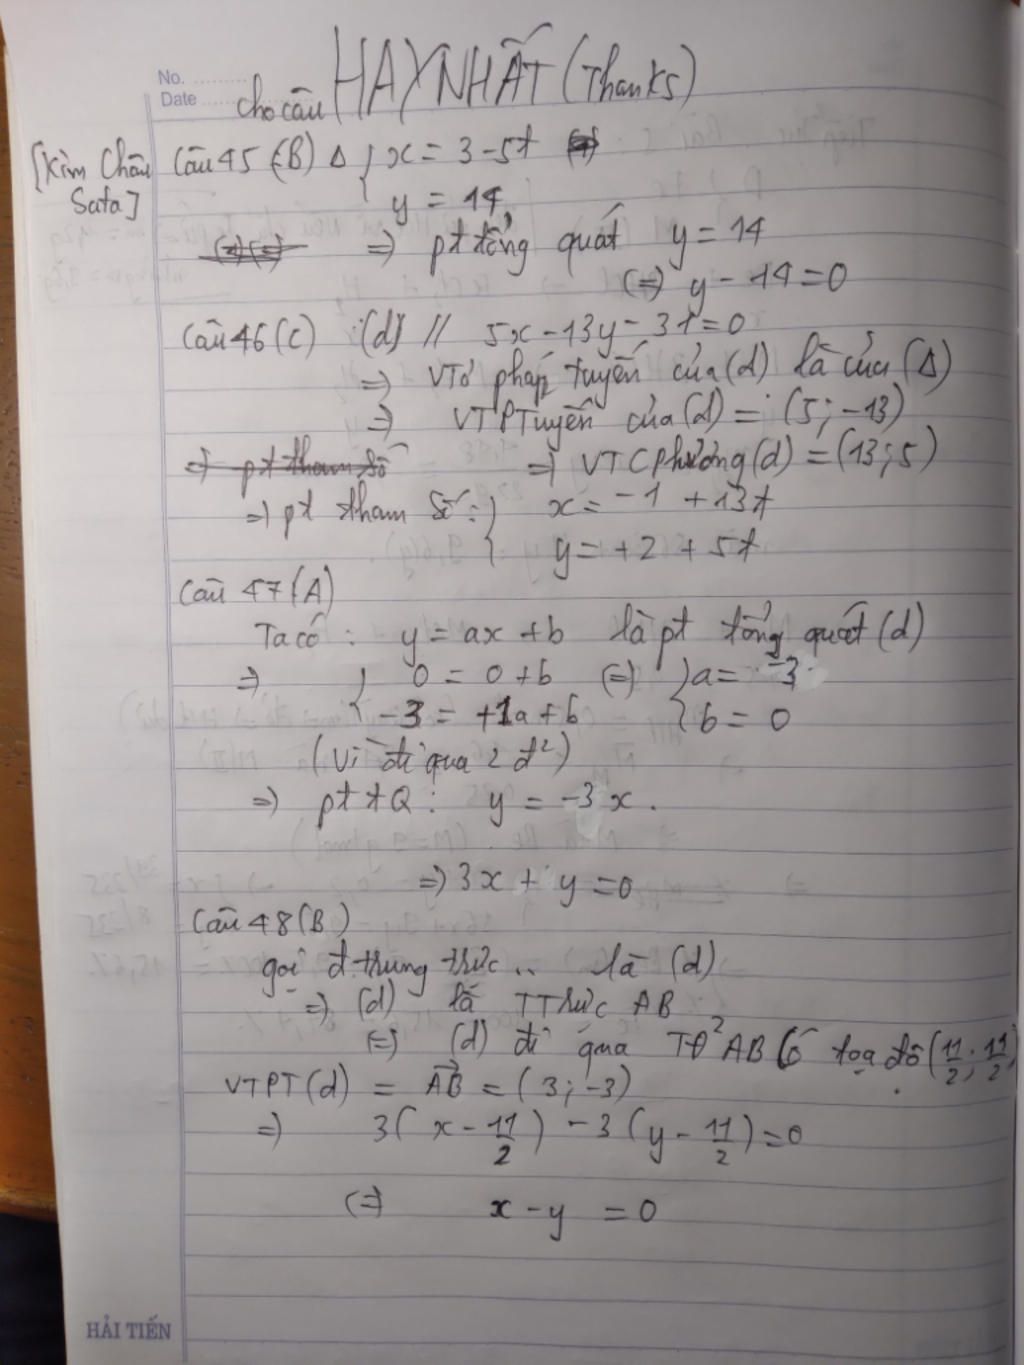 No. ..........
Date ..........
cho câu HAY NHẤT (Thanks)
[Kim Châu
Sata]
Câu 45 (B) Δ { x = 3 - 5t
y = 14
⇒ pt tổng quát y = 14
(⇒ y - 14 = 0
Câu 46 (C) (d) // 5x - 13y - 31 = 0
⇒ VTơ pháp tuyến của (d) là của (Δ)
⇒ VTPTuyến của (d) = (5; -13)
⇒ pt tham số ⇒ VTCphương (d) = (13; 5)
⇒ pt tham số : { x = -1 + 13t
y = +2 + 5t
Câu 47 (A)
Ta có : y = ax + b là pt tổng quát (d)
⇒ { 0 = 0 + b (⇒ { a = -3
-3 = +1a + b b = 0
(Vì đi qua 2 đ²)
⇒ pt tQ : y = -3x .
⇒ 3x + y = 0
Câu 48 (B)
gọi đ trung trực .. là (d)
⇒ (d) là TTrực AB
(⇒ (d) đi qua TĐ² AB Có tọa độ (11/2; 11/2)
VTPT (d) = AB⃗ = (3; -3)
⇒ 3(x - 11/2) - 3(y - 11/2) = 0
(⇒ x - y = 0
HẢI TIẾN